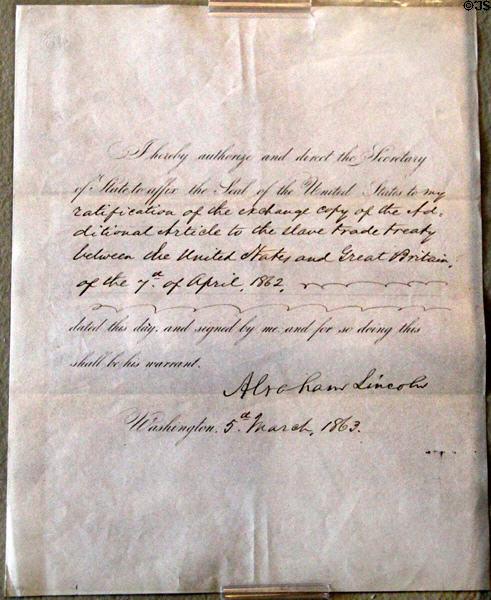 ©JS
I hereby authorize and direct the Secretary
of State to affix the Seal of the United States to my
ratification of the exchange copy of the Ad-
ditional Article to the slave trade treaty
between the United States and Great Britain,
of the 7th of April, 1862.
dated this day, and signed by me and for so doing this
shall be his warrant.
Abraham Lincoln
Washington, 5th March, 1863.